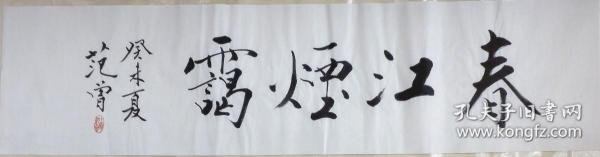 春江煙靄
癸未夏
范曾
孔夫子旧书网
www.kongfz.com